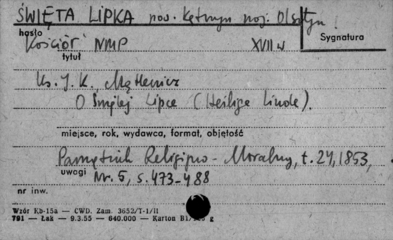 ŚWIĘTA LIPKA pow. Kętrzyn woj. Olsztyn
hasło
Sygnatura
Kościół NMP XVII w
tytuł
Ks. J. K.
O Świętej Lipce (Heilige Linde).
miejsce, rok, wydawca, format, objętość
Pamiętnik Religijno-Moralny, t. 24, 1853,
uwagi
Nr. 5, s. 473-488
nr inw.
Wzór Kb-15a — CWD. Zam. 3652/T-1/II
791 — Łak — 9.3.55 — 640.000 — Karton B1/ g